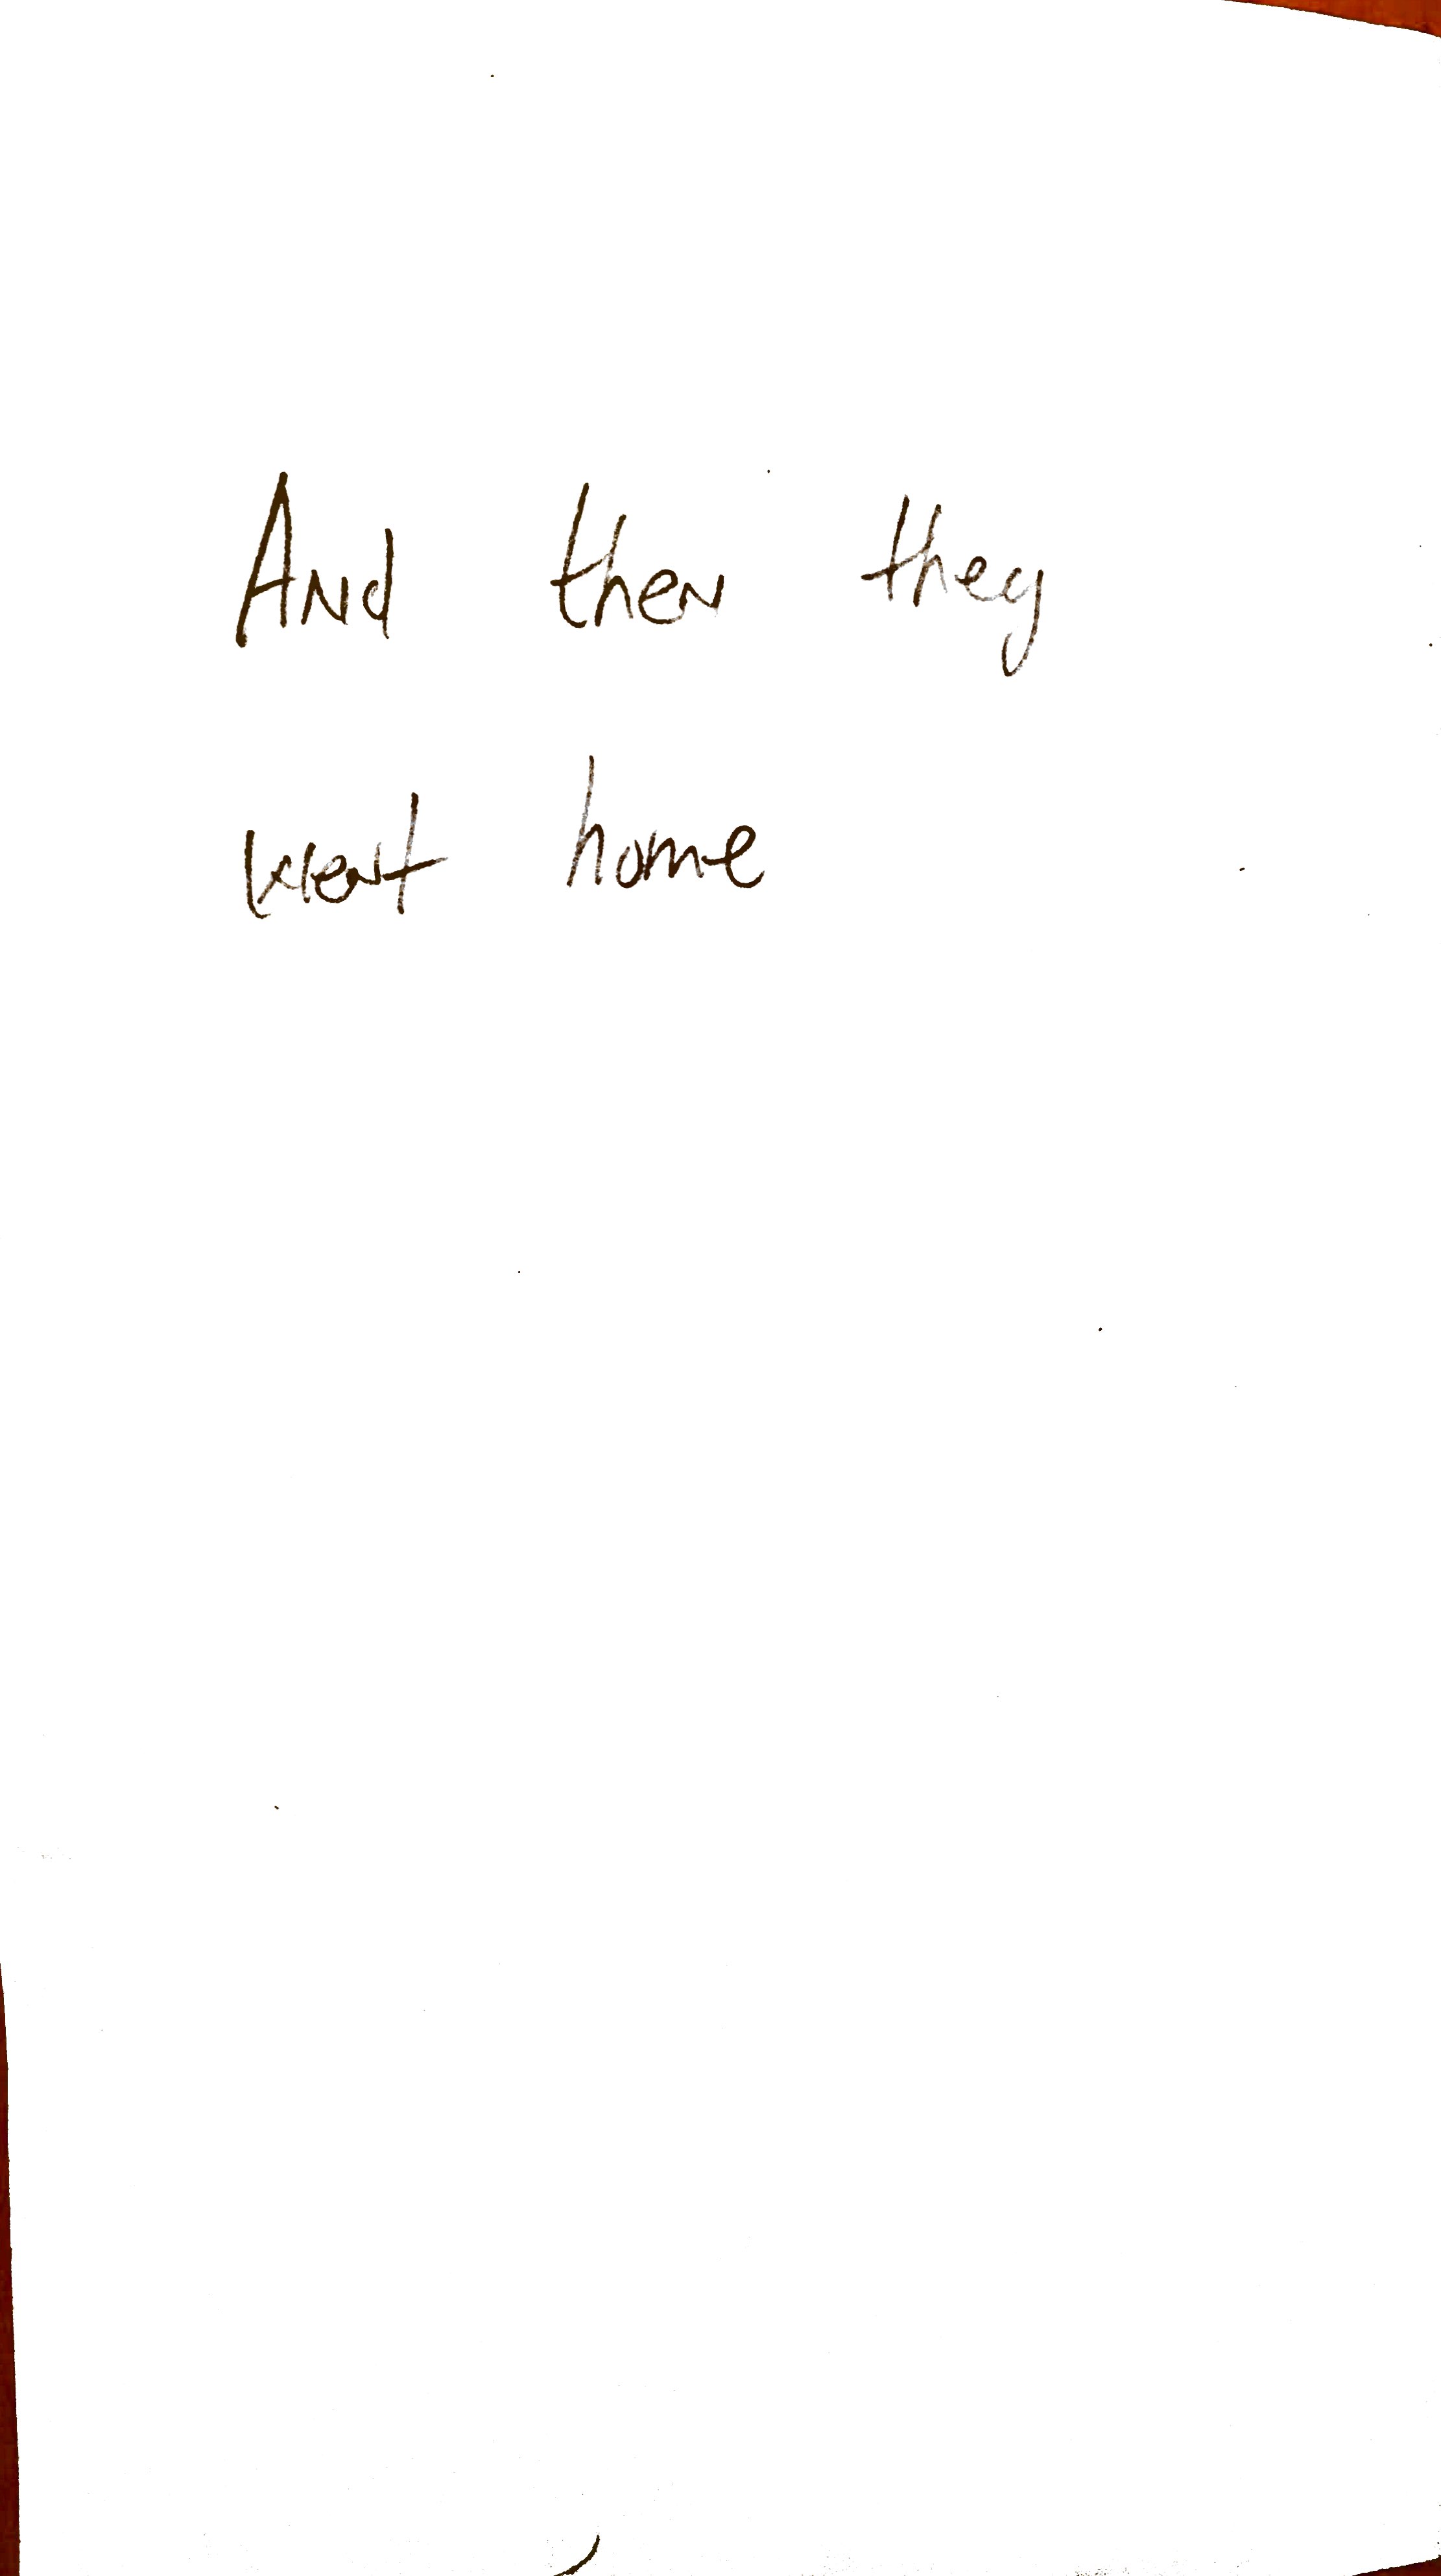 And then they
went home